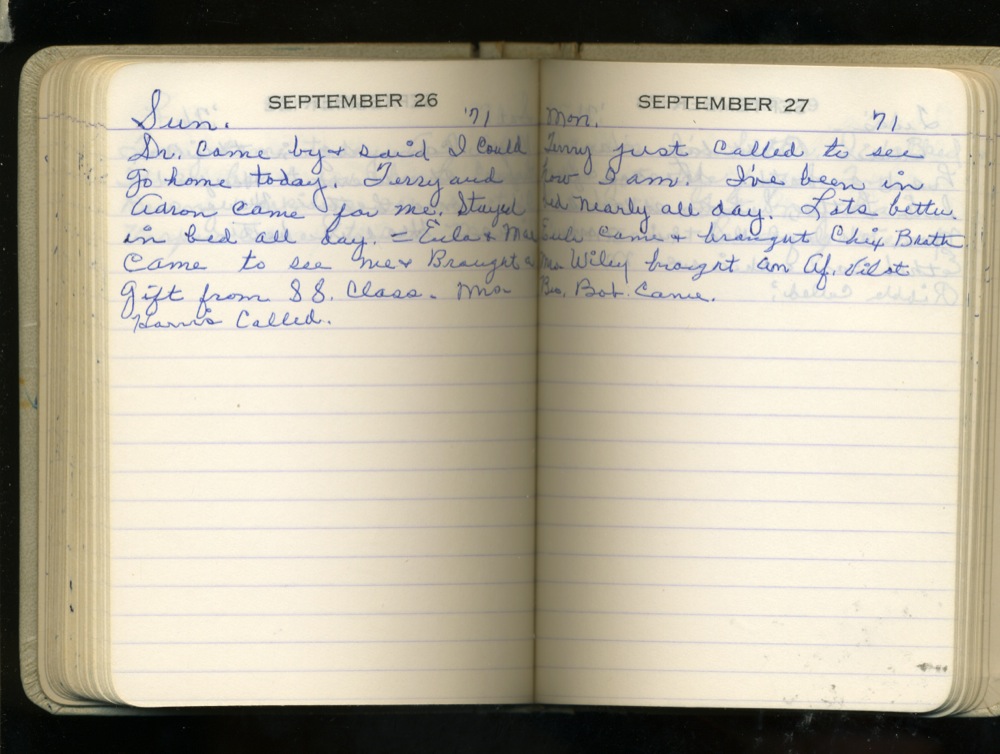 SEPTEMBER 26
Sun. '71
Dr. Came by & said I Could
Go home today. Terry and
Aaron came for me. Stayed
in bed all day. = Eula & Mae
Came to see me & Braught a
Gift from SS. Class. Mrs
Harris Called.
SEPTEMBER 27
Mon. 71
Terry just called to see
how I am. I've been in
bed nearly all day. Lots better.
Eula came & braught Chix Broth
Mrs Wiley braught an Af. Vilot
Bro. Bob. Came.